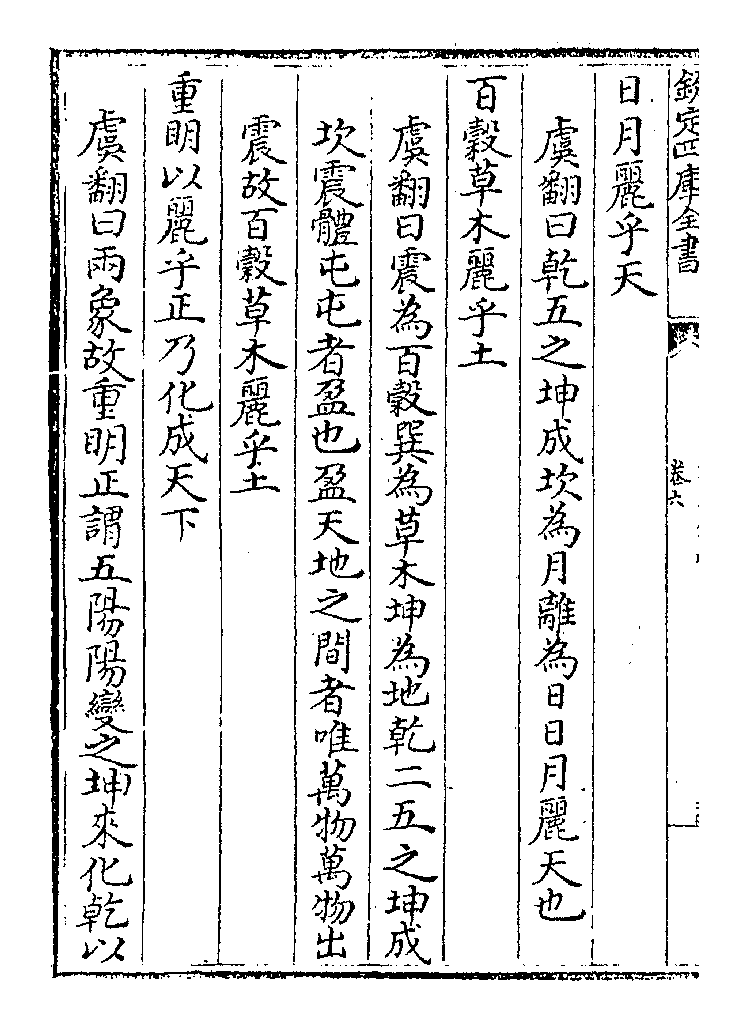 欽定四庫全書
卷六
日月麗乎天
虞翻曰乾五之坤成坎為月離為日日月麗天也
百穀草木麗乎土
虞翻曰震為百穀巽為草木坤為地乾二五之坤成
坎震體屯屯者盈也盈天地之間者唯萬物萬物出
震故百穀草木麗乎土
重明以麗乎正乃化成天下
虞翻曰兩象故重明正謂五陽陽變之坤來化乾以